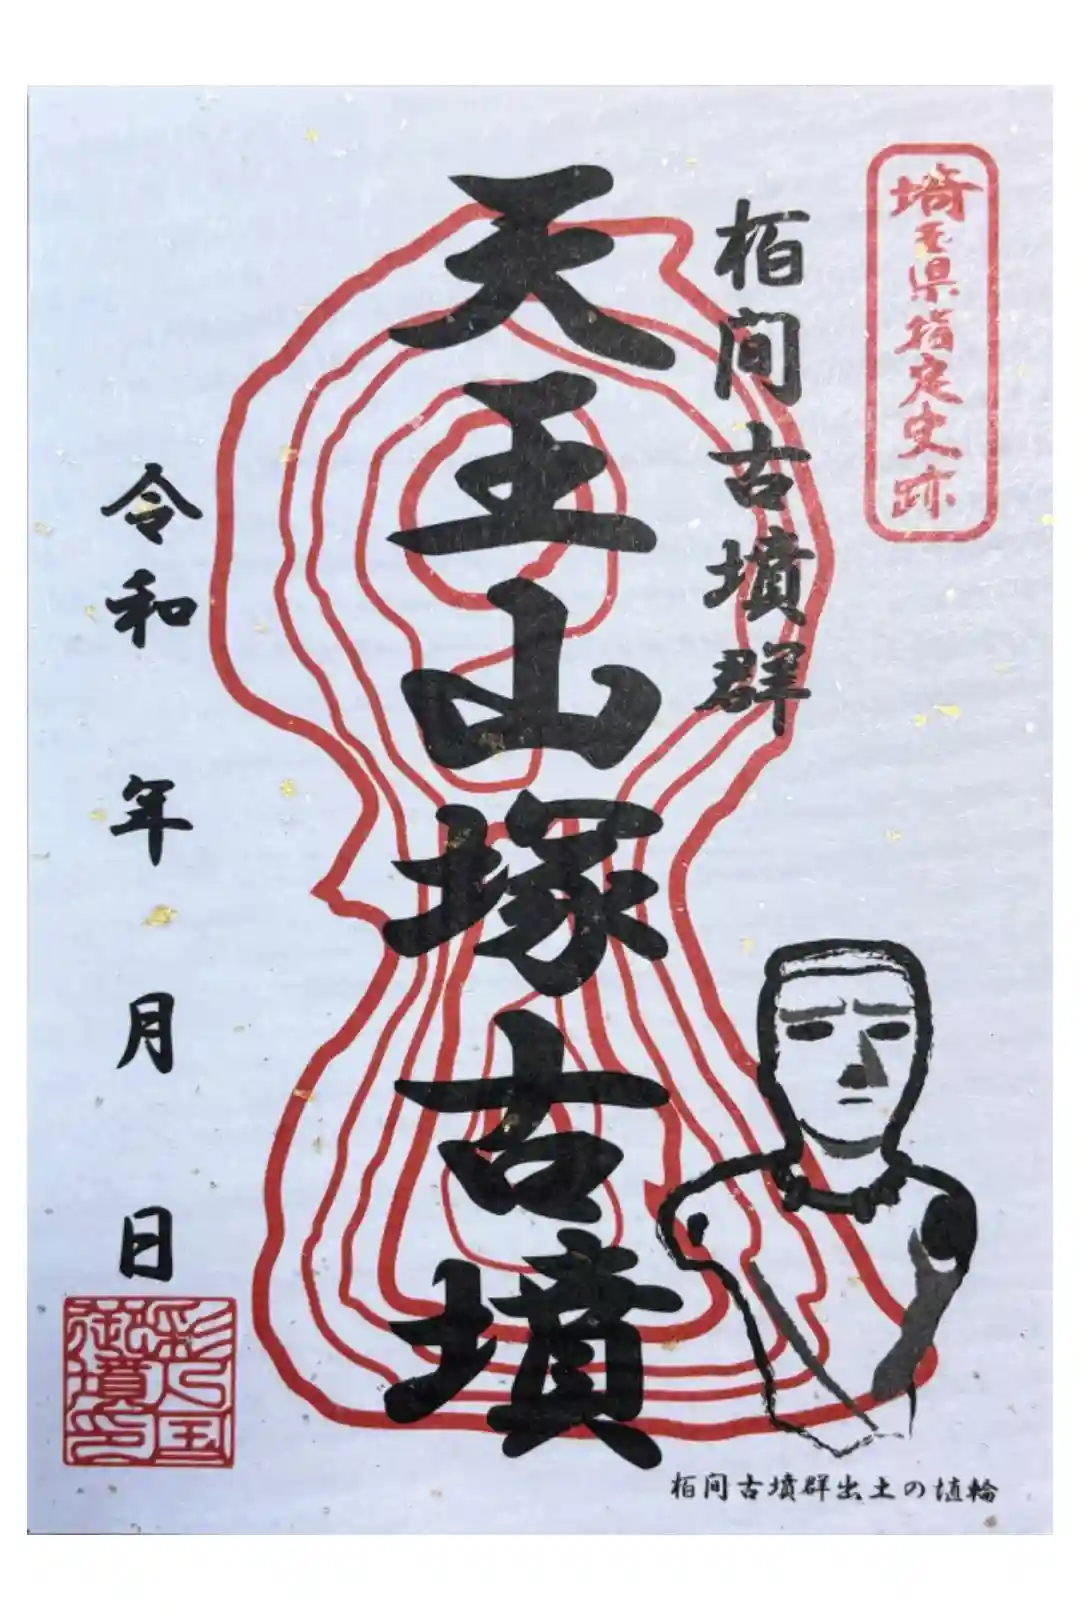 埼玉県指定史跡
栢間古墳群
天王山塚古墳
令和 年 月 日
彩の国
御墳印
栢間古墳群出土の埴輪